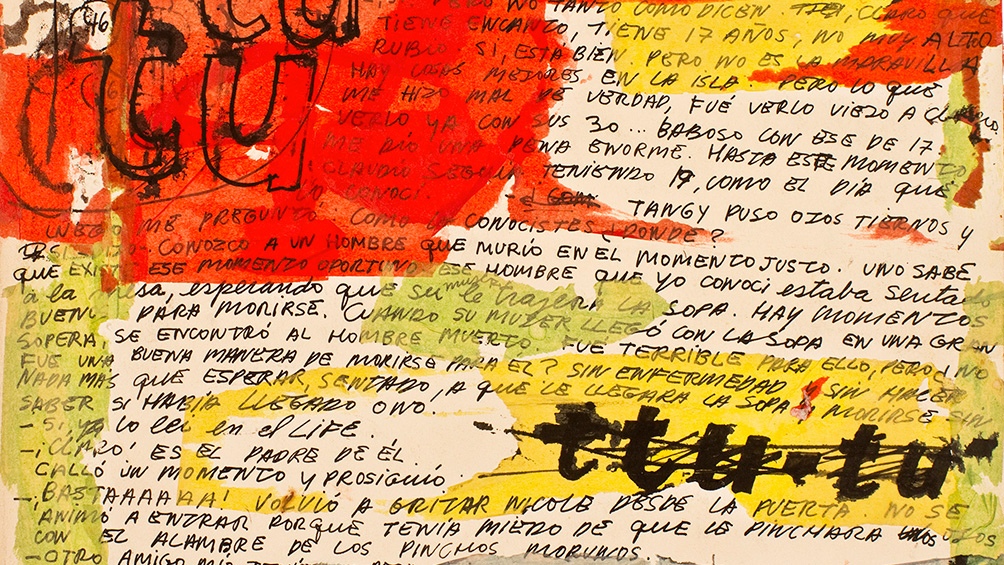 PERO NO TANTO COMO DICEN, CLARO QUE
46
tu
TIENE ENCANTO, TIENE 17 AÑOS, NO MUY ALTO
RUBIO. SI, ESTA BIEN. PERO NO ES LA MARAVILLA
HAY COSAS MEJORES EN LA ISLA. PERO LO QUE
tu
ME HIZO MAL DE VERDAD, FUÉ VERLO VIEJO A
VERLO YA CON SUS 30... BABOSO CON ESE DE 17.
ME DIÓ UNA PENA ENORME. HASTA ESE MOMENTO
CLAUDIO SEGUIA TENIENDO 19, COMO EL DÍA QUE
LO CONOCI
TANGY PUSO OJOS TIERNOS Y
LUEGO ME PREGUNTÓ. COMO LO CONOCISTES ¿DONDE?
CONOZCO A UN HOMBRE QUE MURIÓ EN EL MOMENTO JUSTO. UNO SABE
QUE EXISTE ESE MOMENTO OPORTUNO. ESE HOMBRE QUE YO CONOCI estaba sentado
a la mesa, esperando que su mujer le trajera LA SOPA. HAY MOMENTOS
BUENOS PARA MORIRSE. CUANDO SU MUJER LLEGÓ CON LA SOPA EN UNA GRAN
SOPERA, SE ENCONTRÓ AL HOMBRE MUERTO. FUE TERRIBLE PARA ELLO, PERO ¿NO
FUE UNA BUENA MANERA DE MORIRSE PARA EL? SIN ENFERMEDAD, SIN HACER
NADA MAS QUE ESPERAR, SENTADO, A QUE LE LLEGARA LA SOPA Y MORIRSE SIN
SABER SI HABÍA LLEGADO O NO.
- SI, YA lo leí en el LIFE.
ttu-tu
- ¡CLARO! ES EL PADRE DE ÉL...
CALLÓ UN MOMENTO Y PROSIGUIÓ
- ¡BASTAAAAAA! VOLVIÓ A GRITAR NICOLE DESDE LA PUERTA. NO SE
ANIMÓ A ENTRAR PORQUE TENÍA MIEDO DE QUE LE PINCHARA LOS OJOS
CON EL ALAMBRE DE LOS PINCHOS MORUNOS.
- OTRO AMIGO MÍO